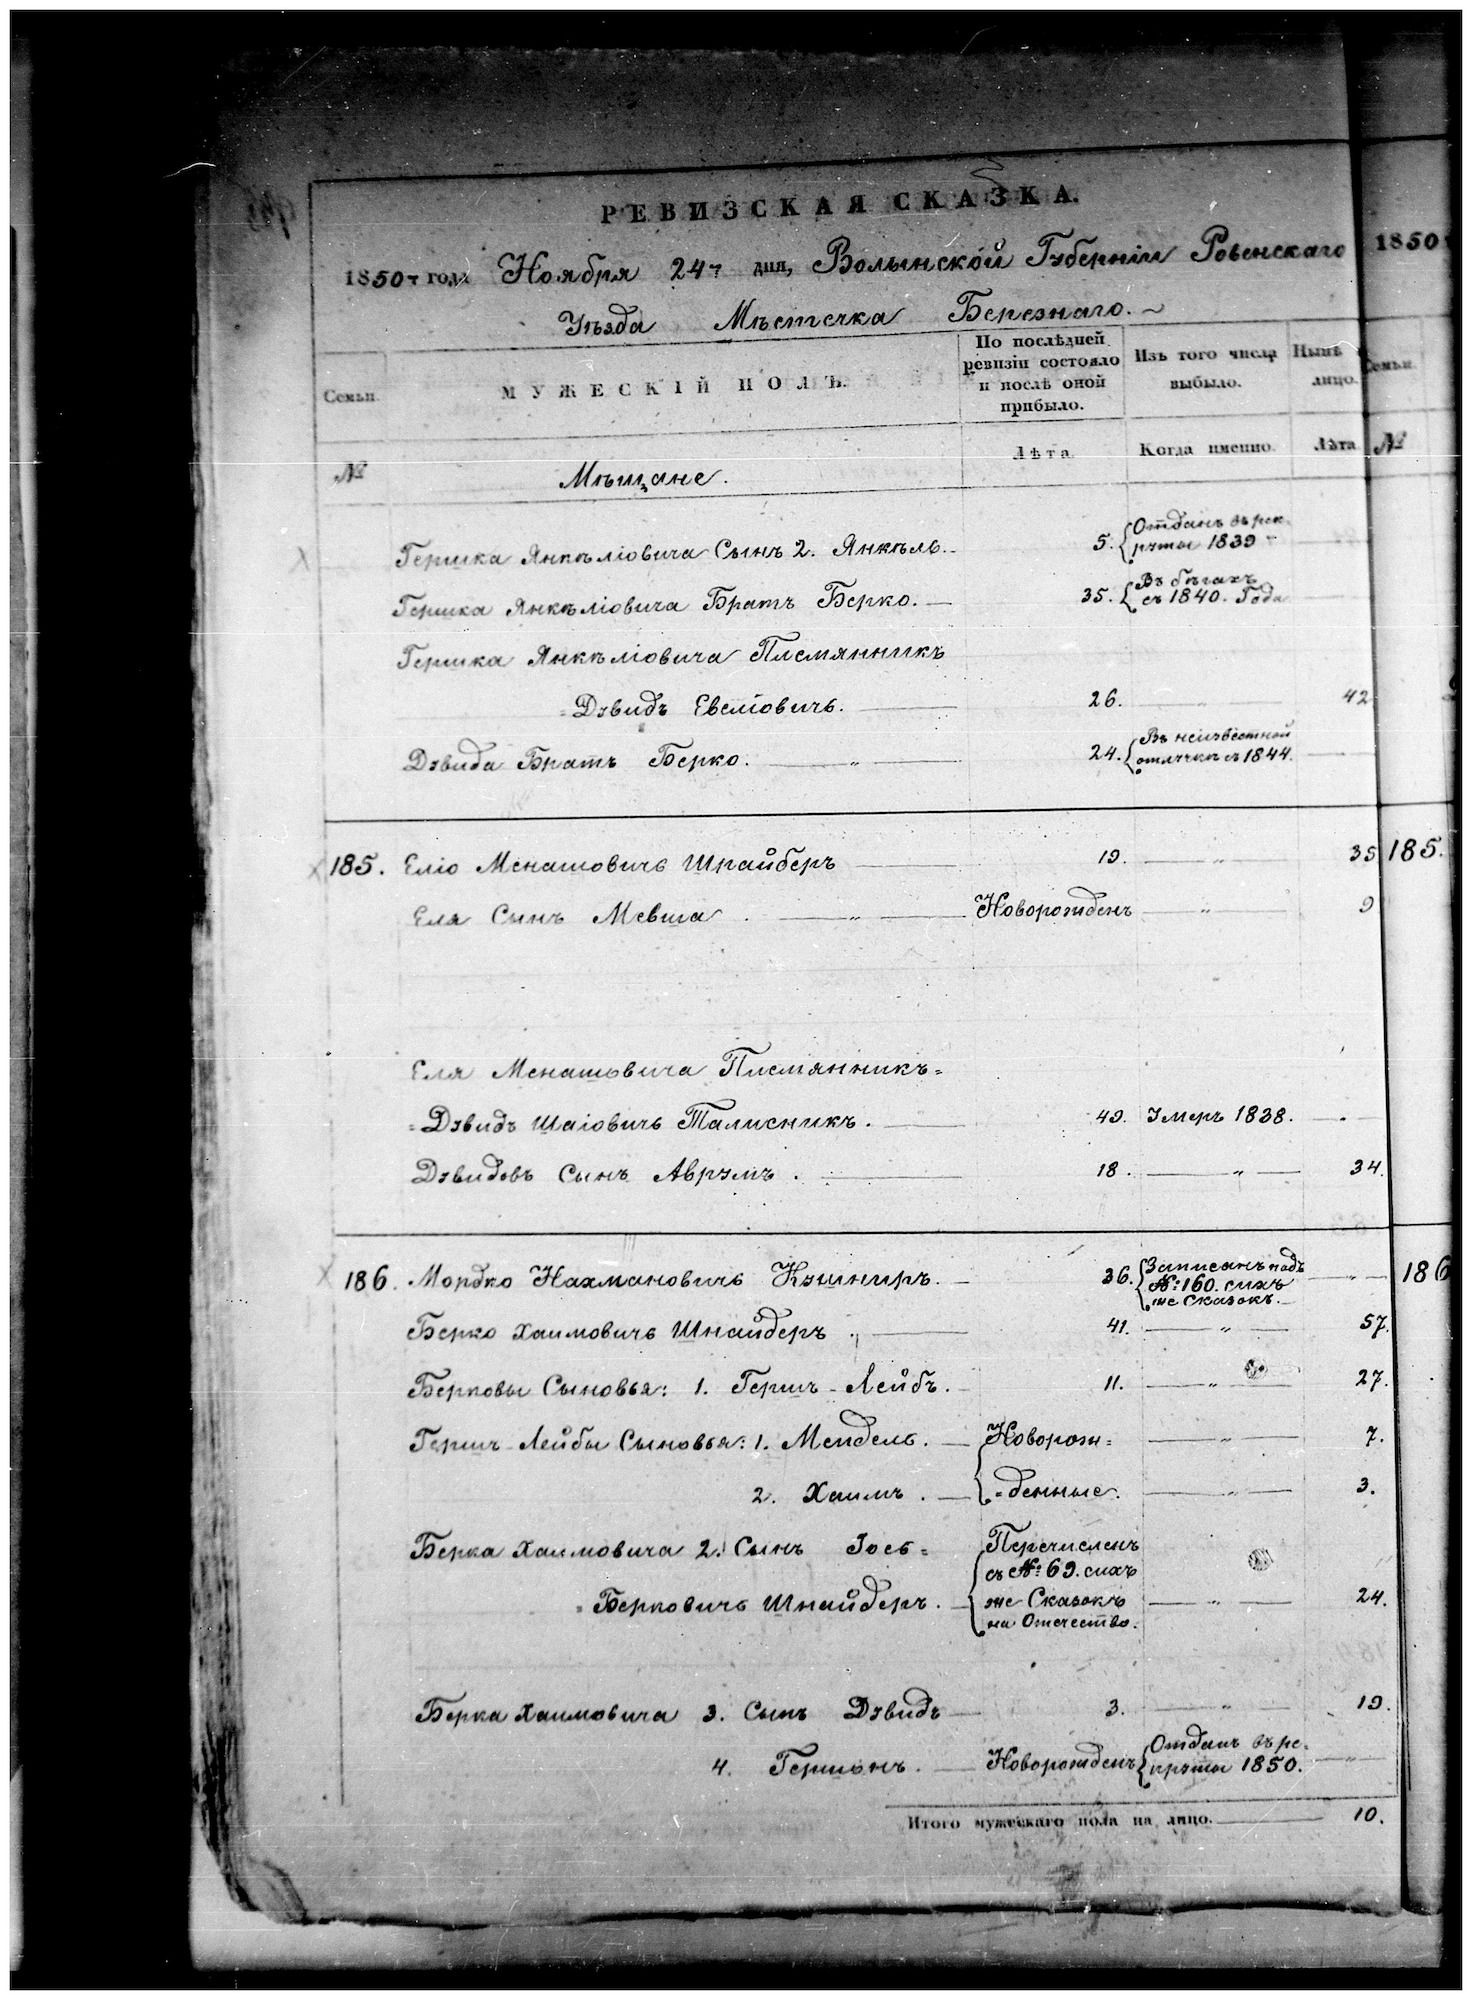 РЕВИЗСКАЯ СКАЗКА.
1850 года Ноября 24 дня, Волынской Губерніи Ровенскаго
1850
Уѣзда Мѣстечка Березнаго.
Семьи.
МУЖЕСКІЙ ПОЛЪ.
По послѣдней ревизіи состояло и послѣ оной прибыло.
Изъ того числа выбыло.
Нынѣ лицо.
Семьи.
№
Мѣщане.
Лѣта.
Когда именно.
Лѣта
№
Гершка Янкеліовича Сынъ 2. Янкель. 5. Отданъ въ рек-
руты 1839
Гершка Янкеліовича Братъ Берко. 35. Въ бѣгахъ
съ 1840. Года
Гершка Янкеліовича Племянникъ
Дувидъ Евеліовичъ. 26. 42
Дувида Братъ Берко. „ 24. Въ неизвѣстной
отлучкѣ съ 1844.
185. Еліо Менашовичъ Шрайберъ 19. „ 35 185.
Еля Сынъ Мевша. „ Новорожденъ „ 9
Еля Менашовича Племянникъ=
=Дувидъ Шаіовичъ Талисникъ. 49. Умеръ 1838.
Дувидовъ Сынъ Аврумъ. 18. „ 34.
186. Мордко Нахмановичъ Кушниръ. 36. Записанъ подъ
№: 160. сихъ
же Сказокъ. „ 186
Берко Хаимовичъ Шнайдеръ. 41. „ 57.
Берковы Сыновья: 1. Гершъ-Лейбъ. 11. „ 27.
Гершъ-Лейбы Сыновья: 1. Мендель. Новорож= „ 7.
2. Хаимъ. =денные. „ 3.
Берка Хаимовича 2. Сынъ Іось= Перечисленъ
съ №: 69. сихъ
=Берковичъ Шнайдеръ. же Сказокъ „ 24.
на Отечество.
Берка Хаимовича 3. Сынъ Дувидъ 3. „ 19.
4. Гершонъ. Новорожденъ Отданъ въ ре-
круты 1850. „
Итого мужескаго пола на лицо. 10.